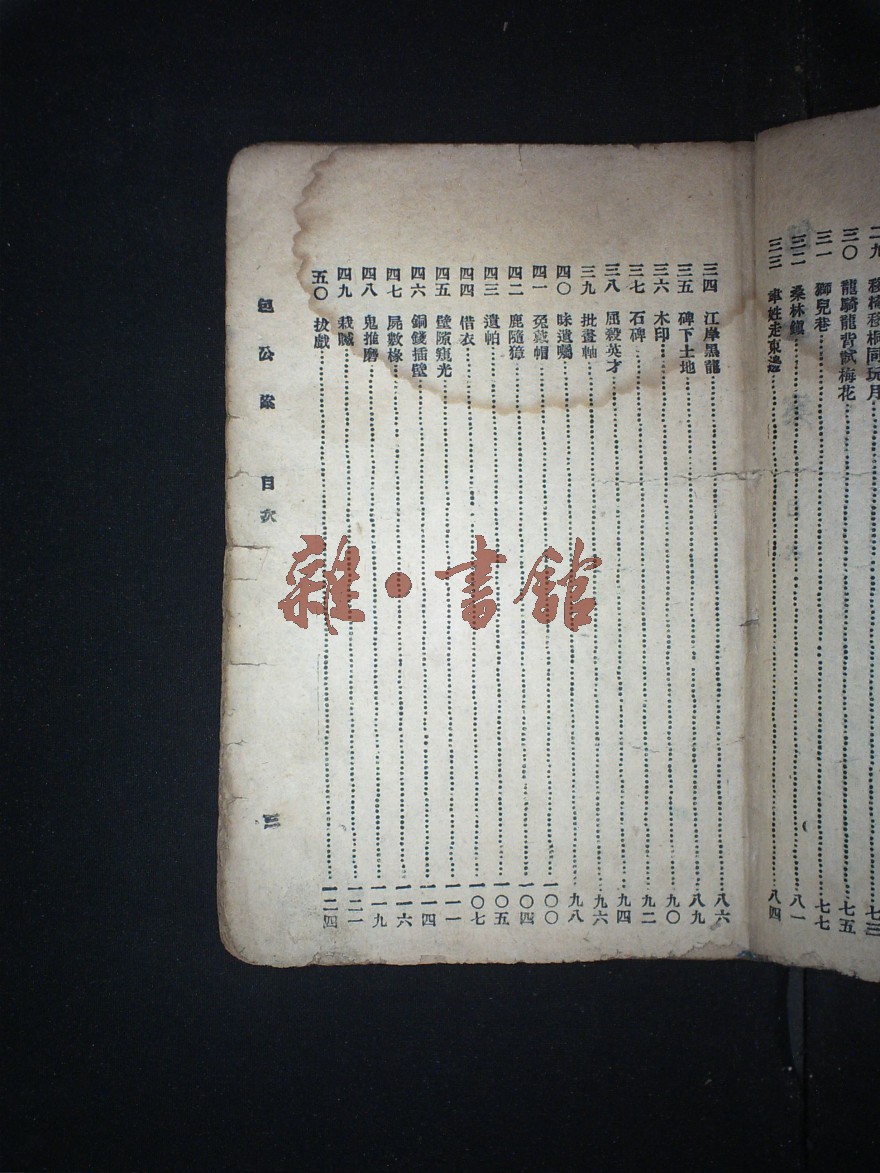 二九 移椅移桐同玩月 七三
三〇 龍騎龍背試梅花 七五
三一 獅兒巷 七七
三二 桑林鎮 八一
三三 聿姓走東邊 八四
三四 江岸黑龍 八六
三五 碑下土地 八九
三六 木印 九〇
三七 石碑 九二
三八 屈殺英才 九四
三九 批畫軸 九六
四〇 昧遺囑 九八
四一 兔戴帽 一〇〇
四二 鹿隨獐 一〇四
四三 遺帕 一〇五
四四 借衣 一〇七
四五 壁隙窺光 一一一
四六 銅錢插壁 一一四
四七 屍數椽 一一六
四八 鬼推磨 一一九
四九 栽贓 一二一
五〇 扮戲 一二四
包公案 目次 三
雜·書館